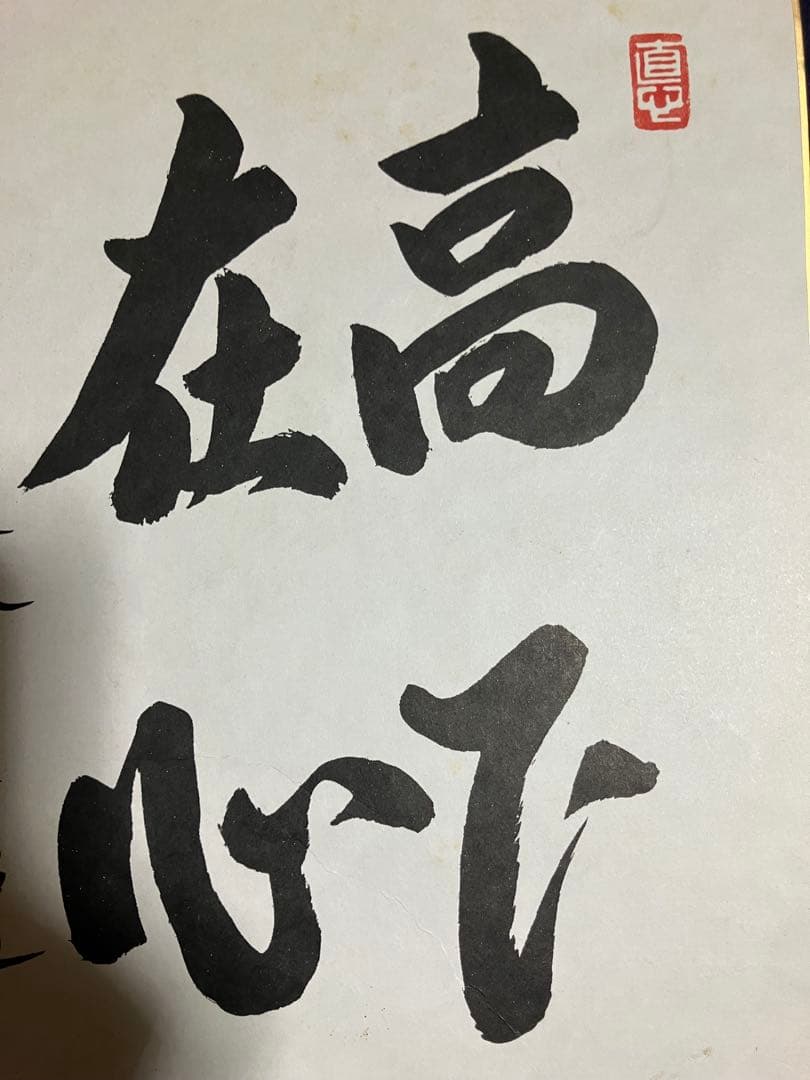 直心
高下
在心